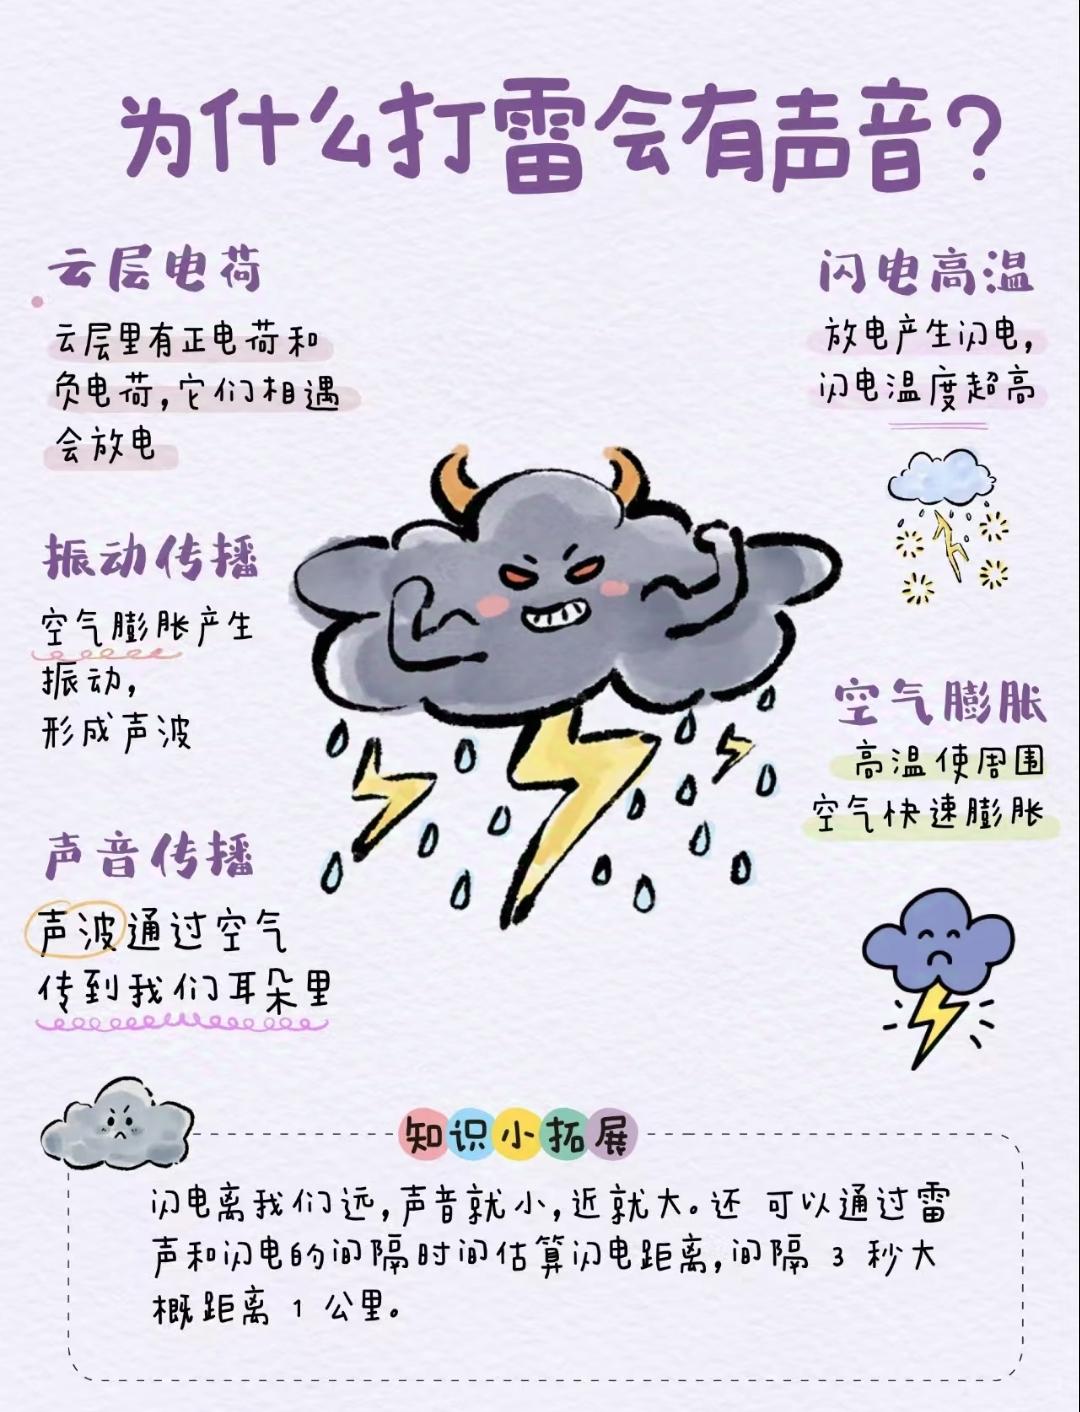 为什么打雷会有声音?
云层电荷
云层里有正电荷和
负电荷,它们相遇
会放电
闪电高温
放电产生闪电,
闪电温度超高
振动传播
空气膨胀产生
振动,
形成声波
空气膨胀
高温使周围
空气快速膨胀
声音传播
声波通过空气
传到我们耳朵里
知识小拓展
闪电离我们远,声音就小,近就大。还 可以通过雷
声和闪电的间隔时间估算闪电距离,间隔 3 秒大
概距离 1 公里。